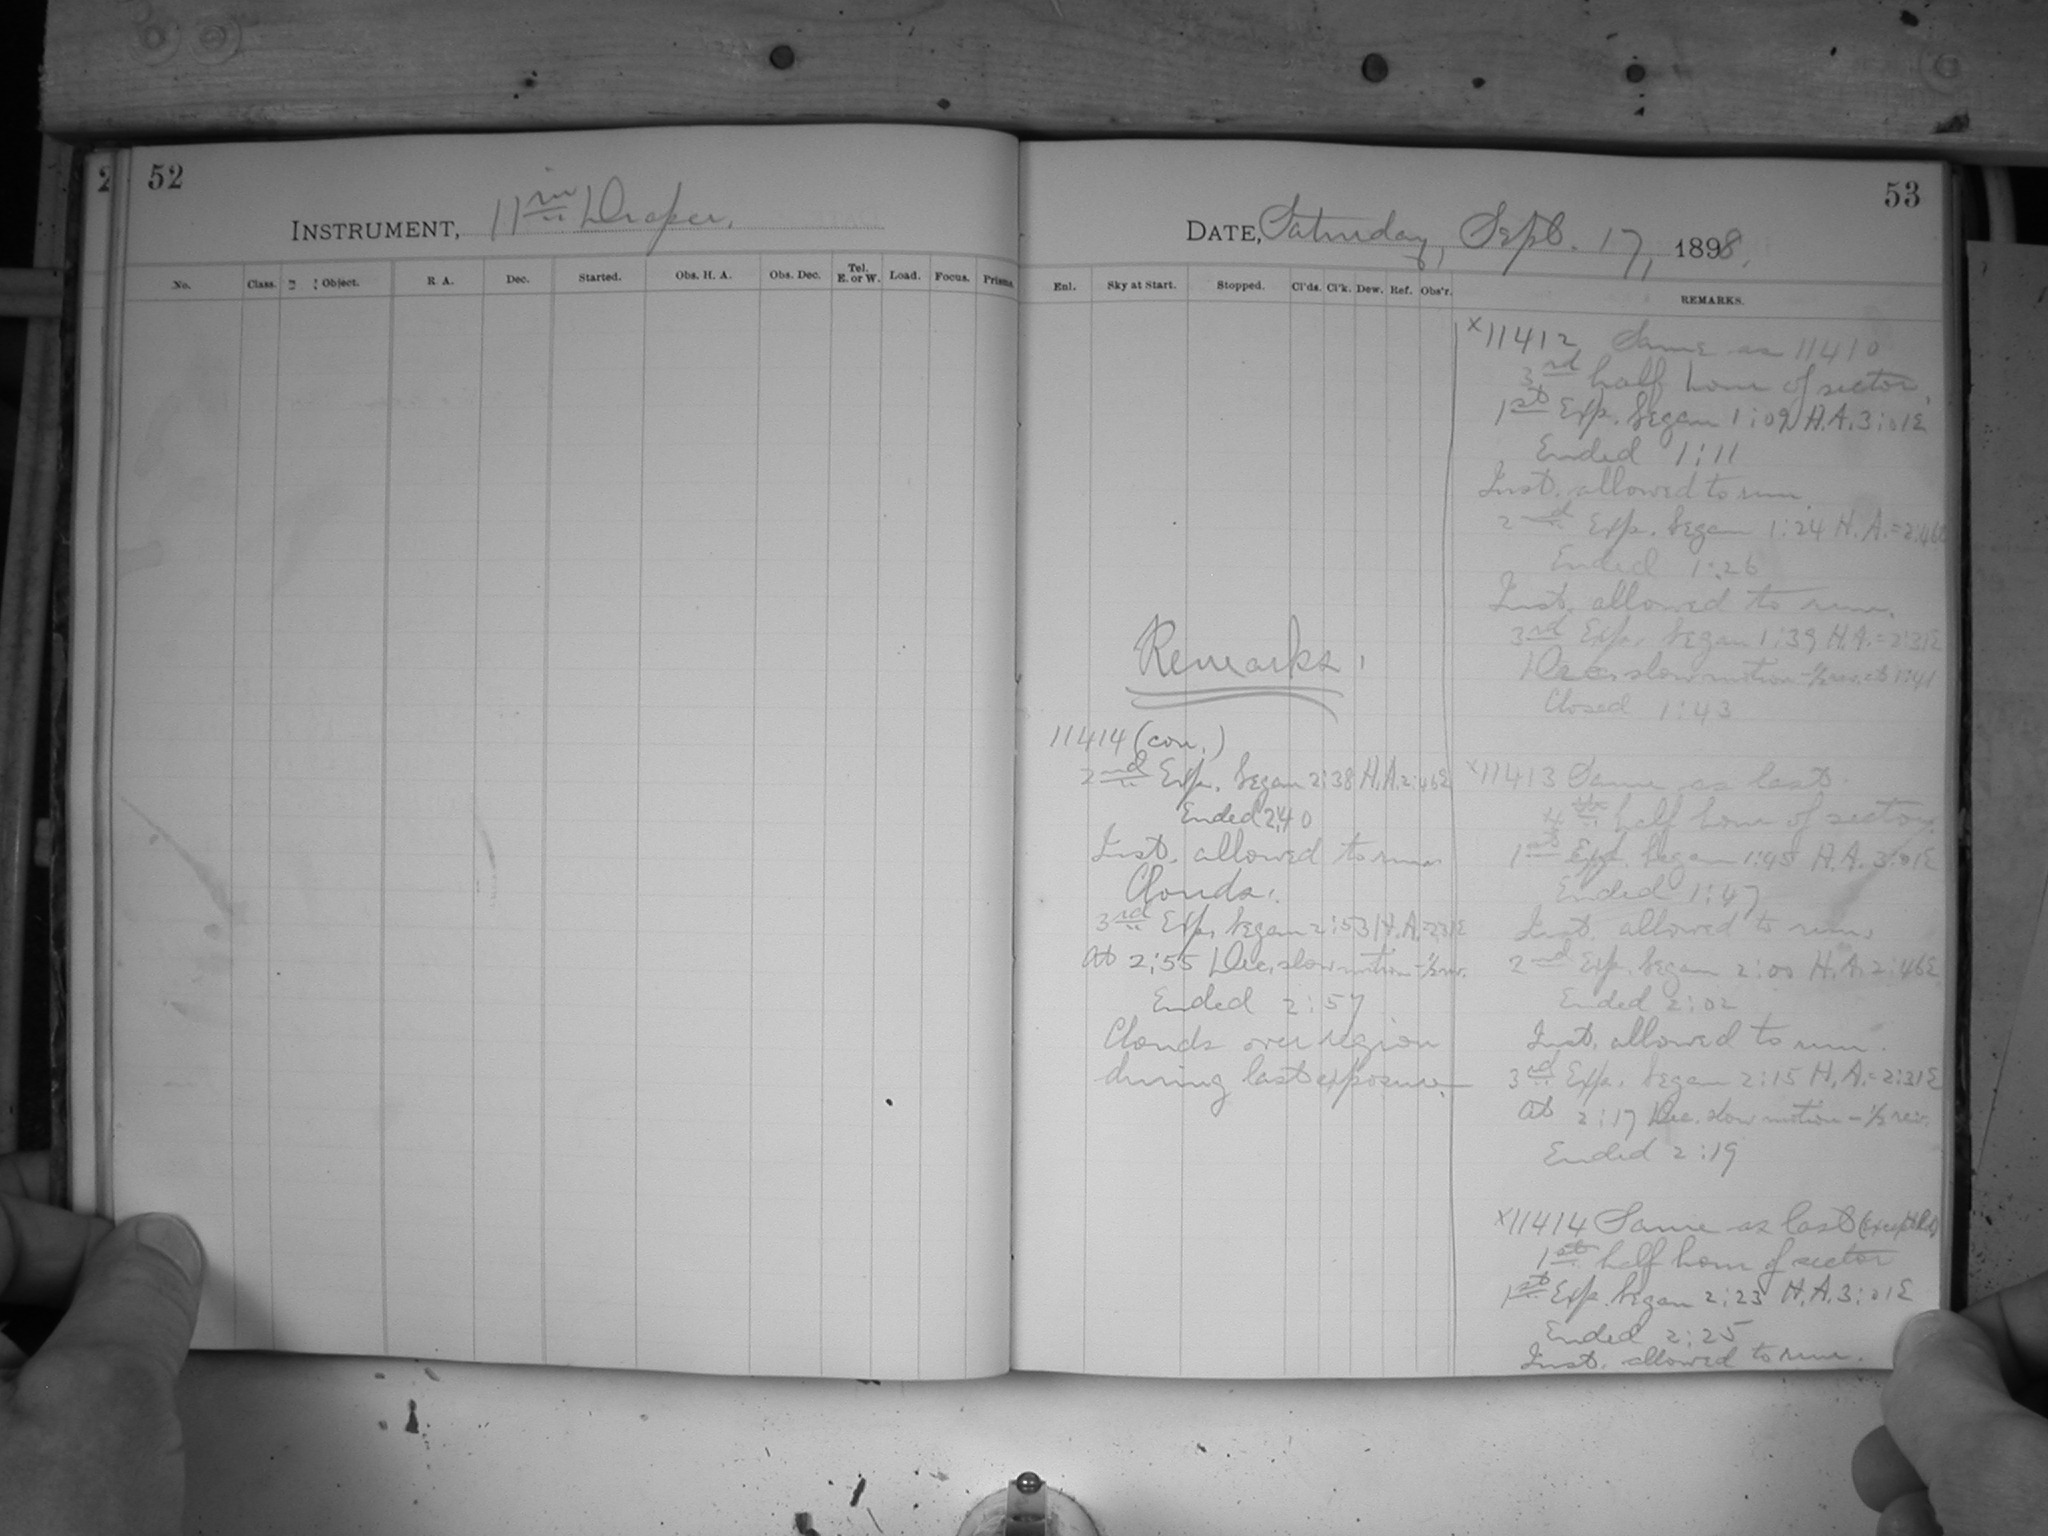 52
INSTRUMENT, 11 in Draper.
No. Class. Object. R. A. Dec. Started. Obs. H. A. Obs. Dec. Tel. E. or W. Load. Focus. Prisms.
53
DATE, Saturday, Sept. 17, 1898.
Enl. Sky at Start. Stopped. Cl'ds. Cl'k. Dew. Ref. Obs'r. REMARKS.
Remarks.
11414 (con.)
2nd Exp. began 2:38 H.A. 2:46E
Ended 2:40
Inst. allowed to run.
Clouds.
3rd Exp. began 2:53 H.A. = 2:31E
At 2:55 Dec. slow motion - 1/2 rev.
Ended 2:57
Clouds over region
during last exposure.
x11412 Same as 11410
3rd half hour of sector,
1st Exp. began 1:09 H.A. 3:01E
Ended 1:11
Inst. allowed to run.
2nd Exp. began 1:24 H.A. = 2:46E
Ended 1:26
Inst. allowed to run.
3rd Exp. began 1:39 H.A. = 2:31E
Dec. slow motion - 1/2 rev. at 1:41
Closed 1:43
x11413 Same as last.
4th half hour of sector.
1st Exp. began 1:45 H.A. 3:01E
Ended 1:47
Inst. allowed to run.
2nd Exp. began 2:00 H.A. 2:46E
Ended 2:02
Inst. allowed to run.
3rd Exp. began 2:15 H.A. = 2:31E
At 2:17 Dec. slow motion - 1/2 rev.
Ended 2:19
x11414 Same as last (except R.A.)
1st half hour of sector
1st Exp. began 2:23 H.A. 3:01E
Ended 2:25
Inst. allowed to run.